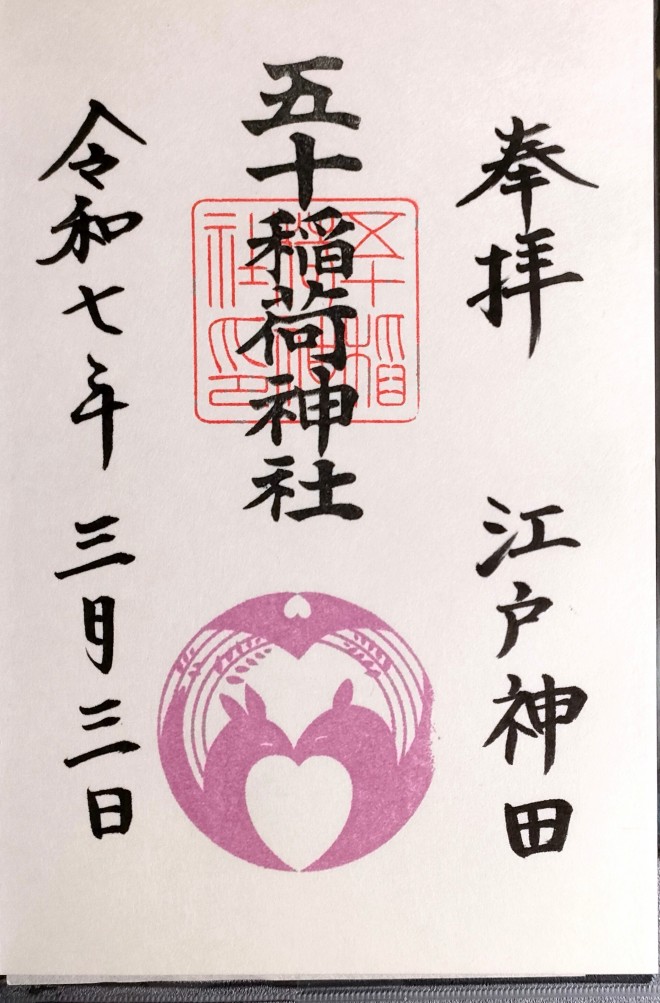 奉拝
江戸神田
五十稲荷神社
五十稲
荷神
社印
令和七年
三月三日